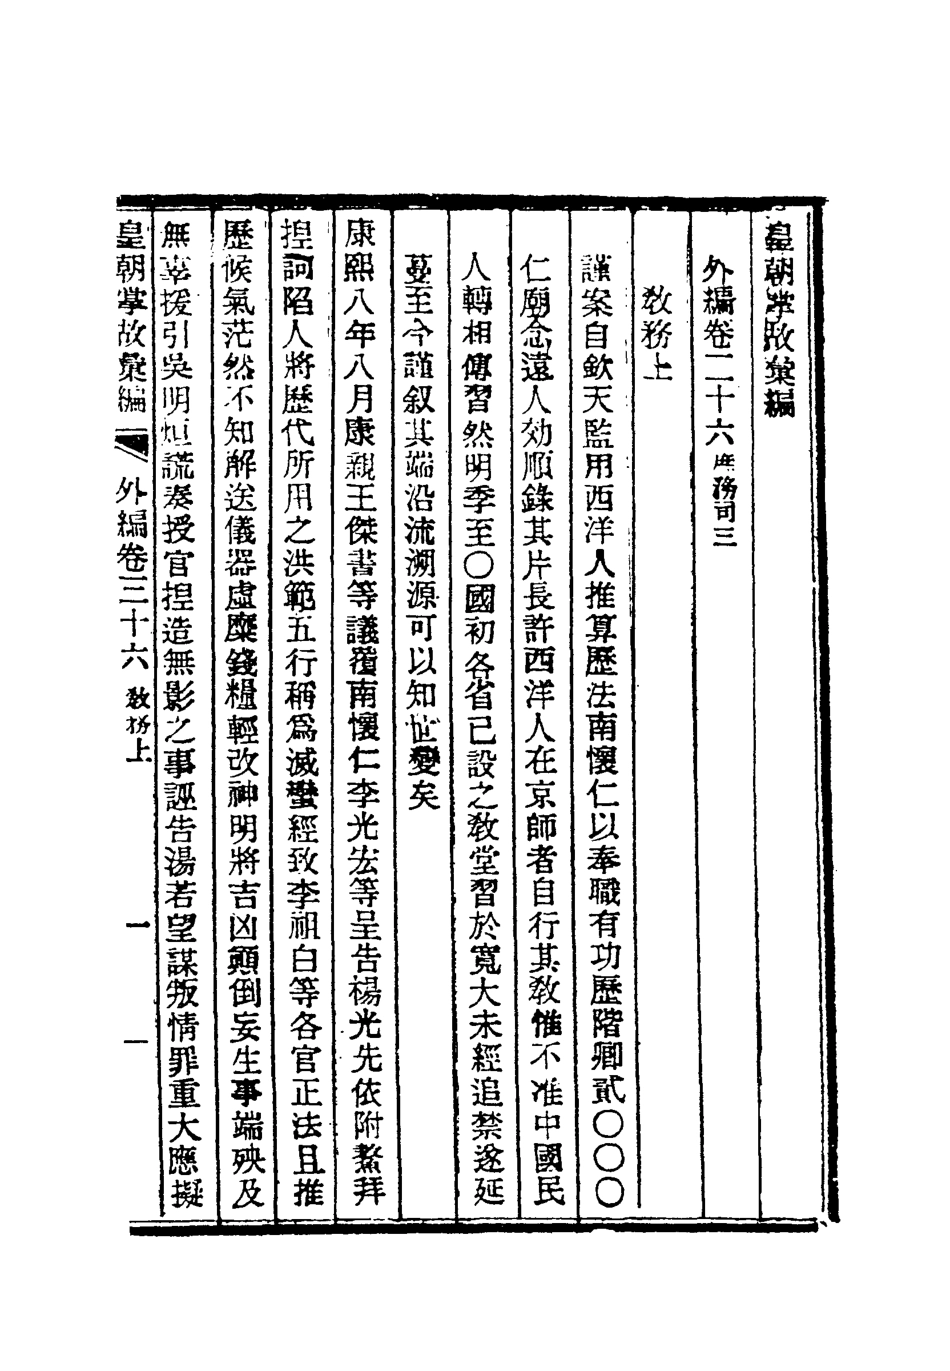 皇朝掌故彙編
外編卷三十六庶務司三
敎務上
謹案自欽天監用西洋人推算歷法南懷仁以奉職有功歷階卿貳〇〇〇
仁廟念遠人効順錄其片長許西洋人在京師者自行其敎惟不准中國民
人轉相傳習然明季至〇國初各省已設之敎堂習於寬大未經追禁遂延
蔓至今謹叙其端沿流溯源可以知世變矣
康熙八年八月康親王傑書等議覆南懷仁李光宏等呈告楊光先依附鰲拜
揑詞陷人將歷代所用之洪範五行稱爲滅蠻經致李祖白等各官正法且推
歷候氣茫然不知解送儀器虛糜錢糧輕改神明將吉凶顚倒妄生事端殃及
無辜援引吳明烜謊奏授官揑造無影之事誣告湯若望謀叛情罪重大應擬
皇朝掌故彙編 外編卷三十六 敎務上 一 一